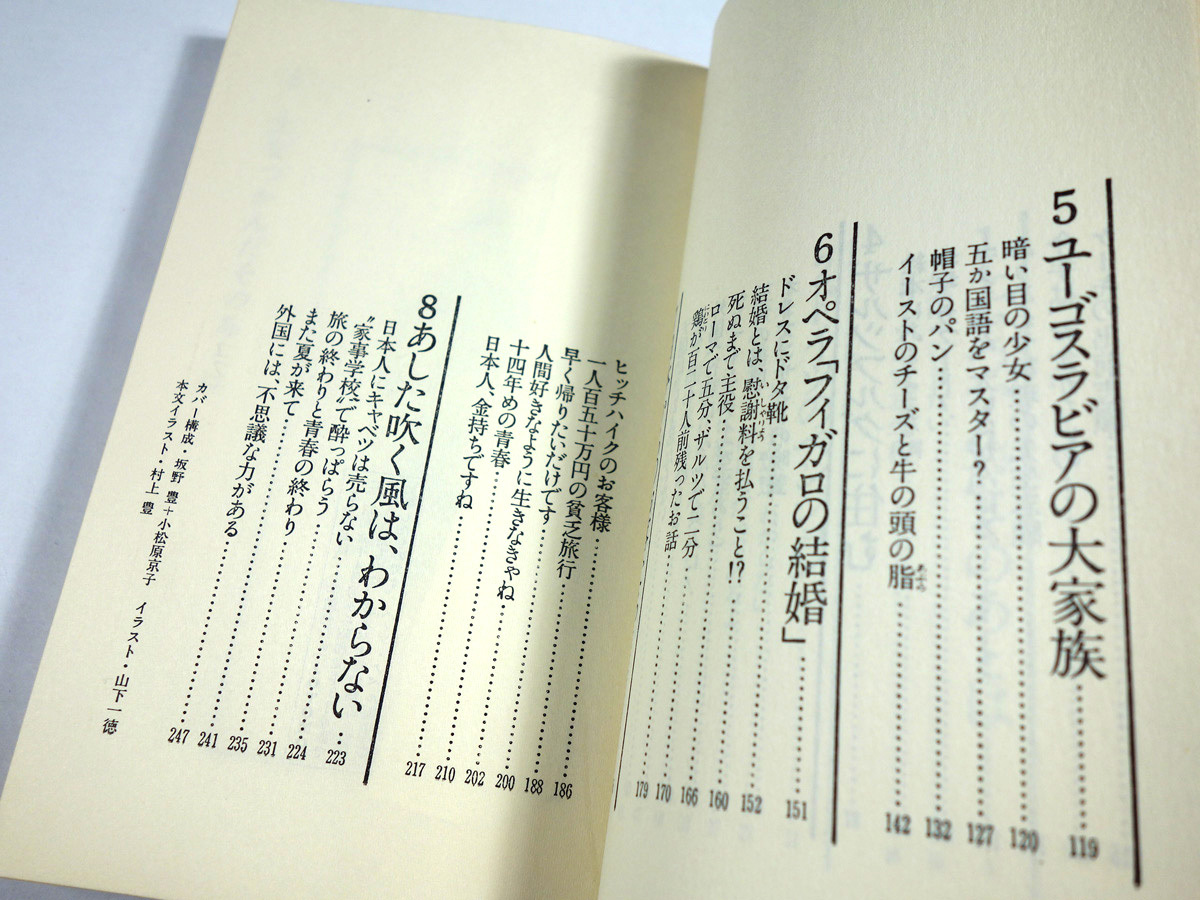 5 ユーゴスラビアの大家族……119
暗い目の少女……120
五か国語をマスター?……127
帽子のパン……132
イーストのチーズと牛の頭の脂……142
あぶら
6 オペラ「フィガロの結婚」……151
ドレスにドタ靴……152
結婚とは、慰謝料を払うこと!?……160
いしゃりょう
死ぬまで主役……166
ローマで五分、ザルツで二分……170
鶏が百二十人前残ったお話……179
にわとり
ヒッチハイクのお客様……186
一人百五十万円の貧乏旅行……188
早く帰りたいだけです……200
人間好きなように生きなきゃね……202
十四年めの青春……210
日本人、金持ちですね……217
8 あした吹く風は、わからない……223
日本人にキャベツは売らない……224
“家事学校”で酔っぱらう……231
旅の終わりと青春の終わり……235
また夏が来て……241
外国には、不思議な力がある……247
カバー構成・坂野 豊+小松原京子 イラスト・山下一徳
本文イラスト・村上 豊